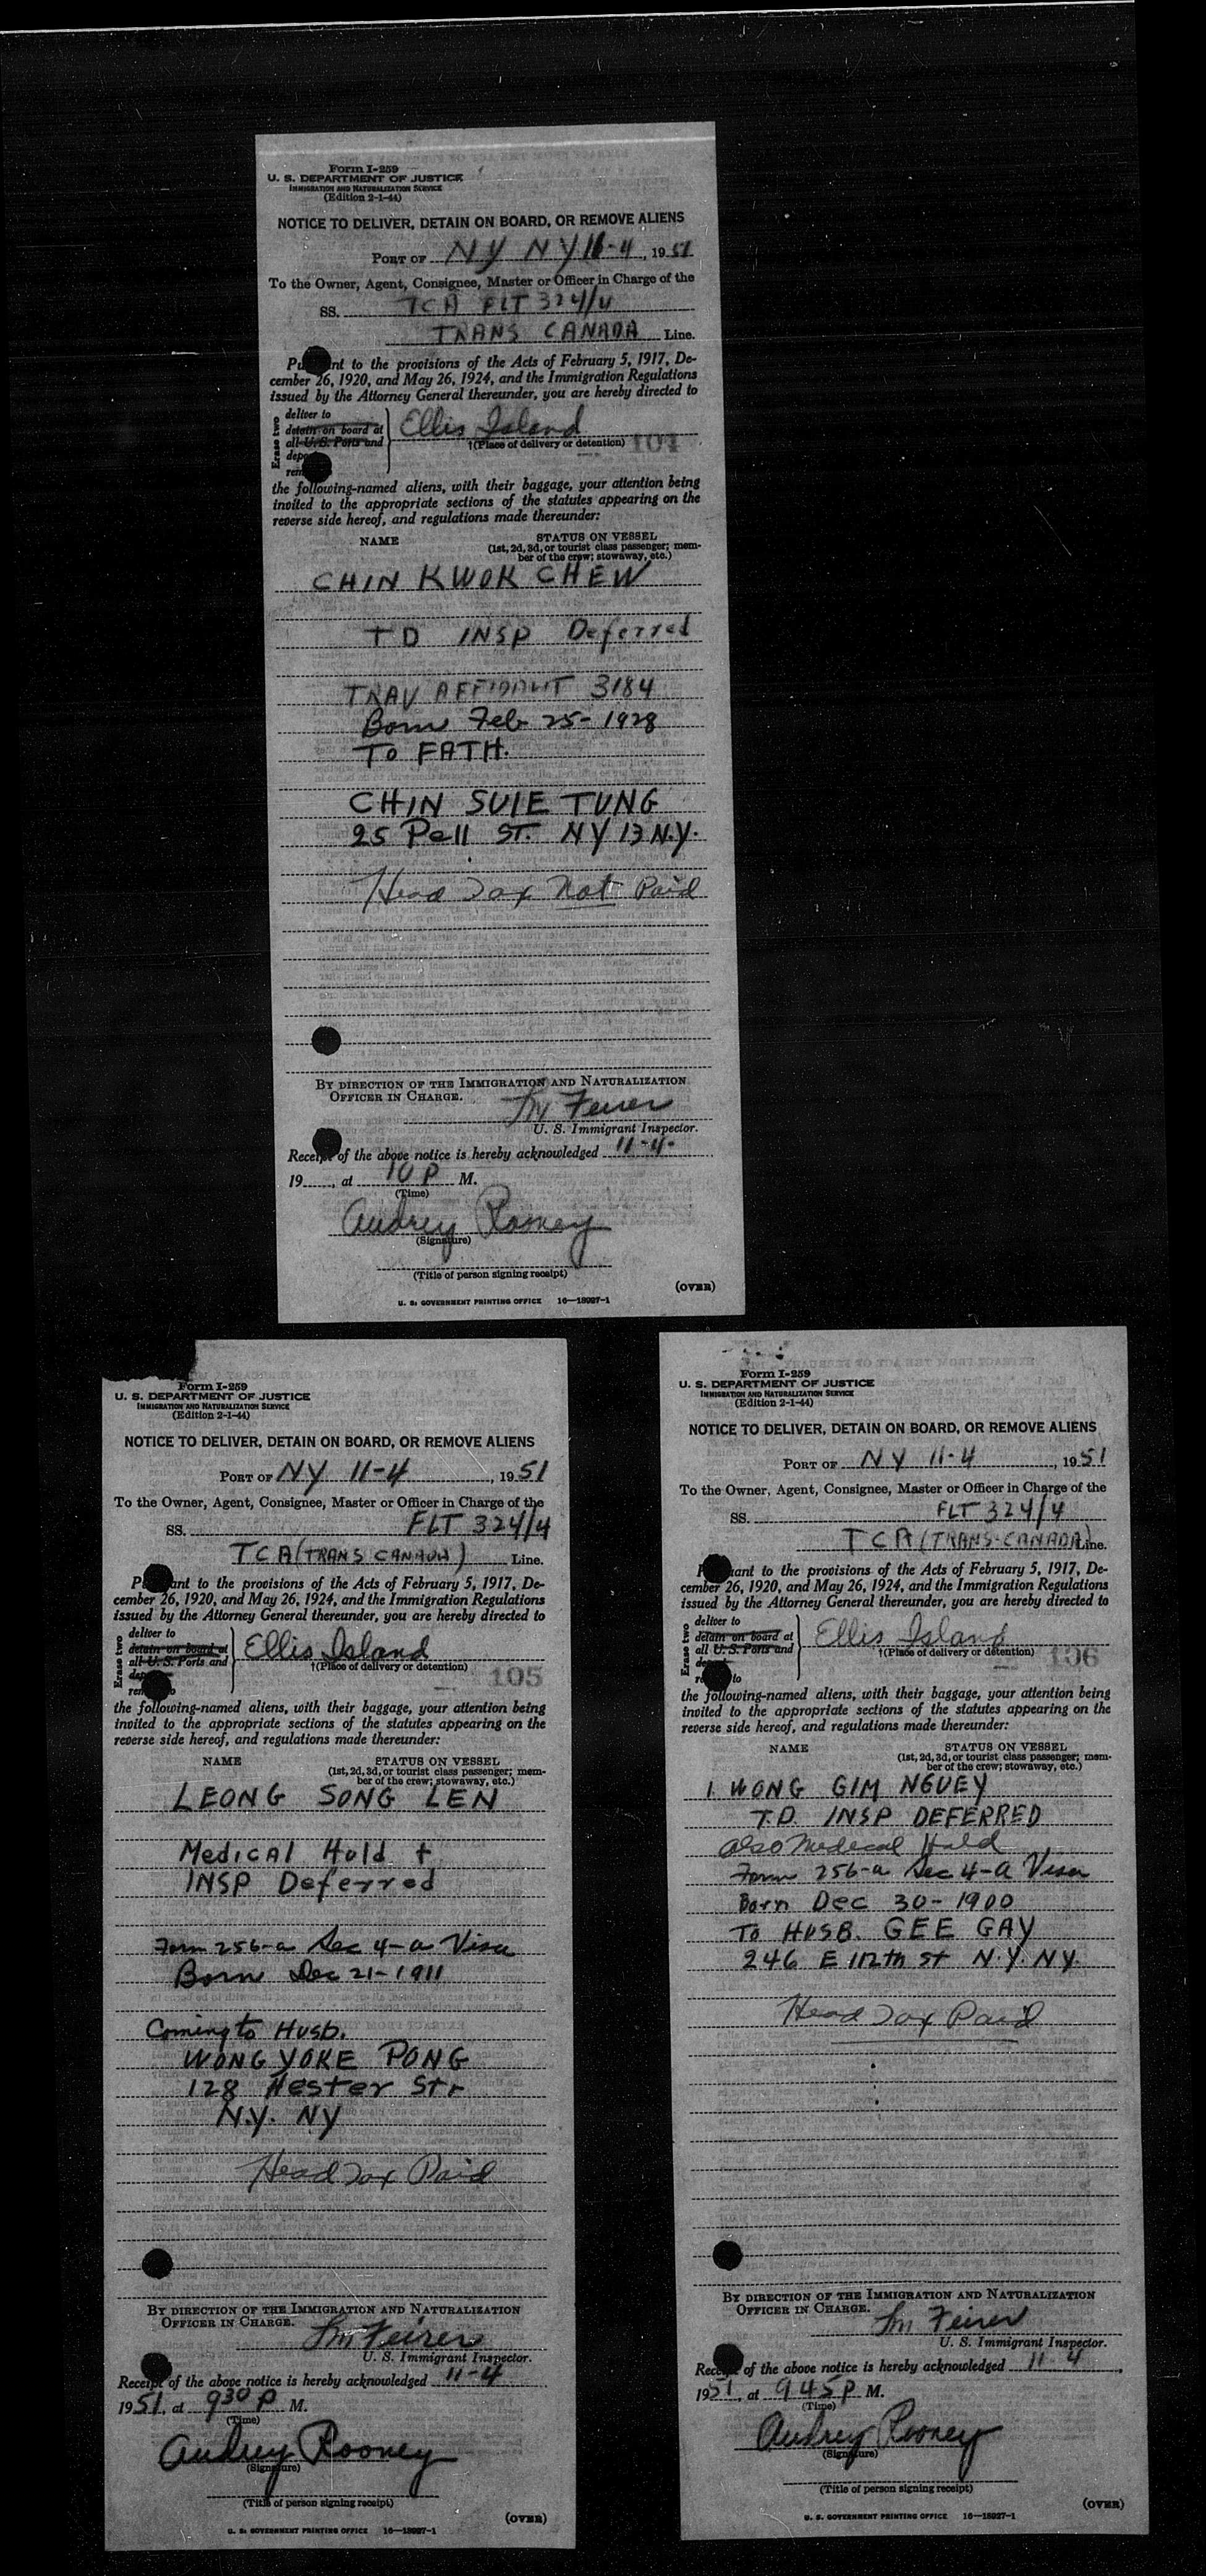 Form I-259
U. S. DEPARTMENT OF JUSTICE
IMMIGRATION AND NATURALIZATION SERVICE
(Edition 2-1-44)
NOTICE TO DELIVER, DETAIN ON BOARD, OR REMOVE ALIENS
PORT OF NY NY 11-4, 1951
To the Owner, Agent, Consignee, Master or Officer in Charge of the
SS. TCA FLT 324/4
TRANS CANADA Line.
Pu nt to the provisions of the Acts of February 5, 1917, De-
cember 26, 1920, and May 26, 1924, and the Immigration Regulations
issued by the Attorney General thereunder, you are hereby directed to
Erase two
deliver to
detain on board at
all U. S. Ports and
depo
rem
Ellis Island
†(Place of delivery or detention) 104
the following-named aliens, with their baggage, your attention being
invited to the appropriate sections of the statutes appearing on the
reverse side hereof, and regulations made thereunder:
NAME STATUS ON VESSEL
(1st, 2d, 3d, or tourist class passenger; mem-
ber of the crew; stowaway, etc.)
CHIN KWOK CHEW
TD INSP Deferred
TRAV AFFIDAVIT 3184
Born Feb 25-1928
To FATH.
CHIN SUIE TUNG
25 Pell ST. NY 13 N.Y.
Head Tax Not Paid
BY DIRECTION OF THE IMMIGRATION AND NATURALIZATION
OFFICER IN CHARGE.
U. S. Immigrant Inspector.
Receipt of the above notice is hereby acknowledged 11-4-
19 , at 10 P M.
(Time)
Audrey Rooney
(Signature)
(Title of person signing receipt)
(OVER)
U. S. GOVERNMENT PRINTING OFFICE 16—18927-1
Form I-259
U. S. DEPARTMENT OF JUSTICE
IMMIGRATION AND NATURALIZATION SERVICE
(Edition 2-1-44)
NOTICE TO DELIVER, DETAIN ON BOARD, OR REMOVE ALIENS
PORT OF NY 11-4, 1951
To the Owner, Agent, Consignee, Master or Officer in Charge of the
SS. FLT 324/4
TCA (TRANS CANADA) Line.
P ant to the provisions of the Acts of February 5, 1917, De-
cember 26, 1920, and May 26, 1924, and the Immigration Regulations
issued by the Attorney General thereunder, you are hereby directed to
Erase two
deliver to
detain on board at
all U. S. Ports and
dep
rem o
Ellis Island
†(Place of delivery or detention) 105
the following-named aliens, with their baggage, your attention being
invited to the appropriate sections of the statutes appearing on the
reverse side hereof, and regulations made thereunder:
NAME STATUS ON VESSEL
(1st, 2d, 3d, or tourist class passenger; mem-
ber of the crew; stowaway, etc.)
LEONG SONG LEN
Medical Hold +
INSP Deferred
Form 256-a Sec 4-a Visa
Born Dec 21-1911
Coming to Husb.
WONG YOKE PONG
128 Hester Str
N.Y. NY
Head Tax Paid
BY DIRECTION OF THE IMMIGRATION AND NATURALIZATION
OFFICER IN CHARGE.
U. S. Immigrant Inspector.
Receipt of the above notice is hereby acknowledged 11-4
1951, at 930 P M.
(Time)
Audrey Rooney
(Signature)
(Title of person signing receipt)
(OVER)
U. S. GOVERNMENT PRINTING OFFICE 16—18927-1
Form I-259
U. S. DEPARTMENT OF JUSTICE
IMMIGRATION AND NATURALIZATION SERVICE
(Edition 2-1-44)
NOTICE TO DELIVER, DETAIN ON BOARD, OR REMOVE ALIENS
PORT OF NY 11-4, 1951
To the Owner, Agent, Consignee, Master or Officer in Charge of the
SS. FLT 324/4
TCA (TRANS-CANADA) Line.
P uant to the provisions of the Acts of February 5, 1917, De-
cember 26, 1920, and May 26, 1924, and the Immigration Regulations
issued by the Attorney General thereunder, you are hereby directed to
Erase two
deliver to
detain on board at
all U. S. Ports and
de
r to
Ellis Island
†(Place of delivery or detention) 106
the following-named aliens, with their baggage, your attention being
invited to the appropriate sections of the statutes appearing on the
reverse side hereof, and regulations made thereunder:
NAME STATUS ON VESSEL
(1st, 2d, 3d, or tourist class passenger; mem-
ber of the crew; stowaway, etc.)
1. WONG GIM NGUEY
T.D. INSP DEFERRED
also Medical Hold
Form 256-a Sec 4-a Visa
Born Dec 30-1900
To HUSB. GEE GAY
246 E 112th St N.Y. N.Y.
Head Tax Paid
BY DIRECTION OF THE IMMIGRATION AND NATURALIZATION
OFFICER IN CHARGE.
U. S. Immigrant Inspector.
Receipt of the above notice is hereby acknowledged 11 4,
1951, at 945 P M.
(Time)
Audrey Rooney
(Signature)
(Title of person signing receipt)
(OVER)
U. S. GOVERNMENT PRINTING OFFICE 16—18927-1